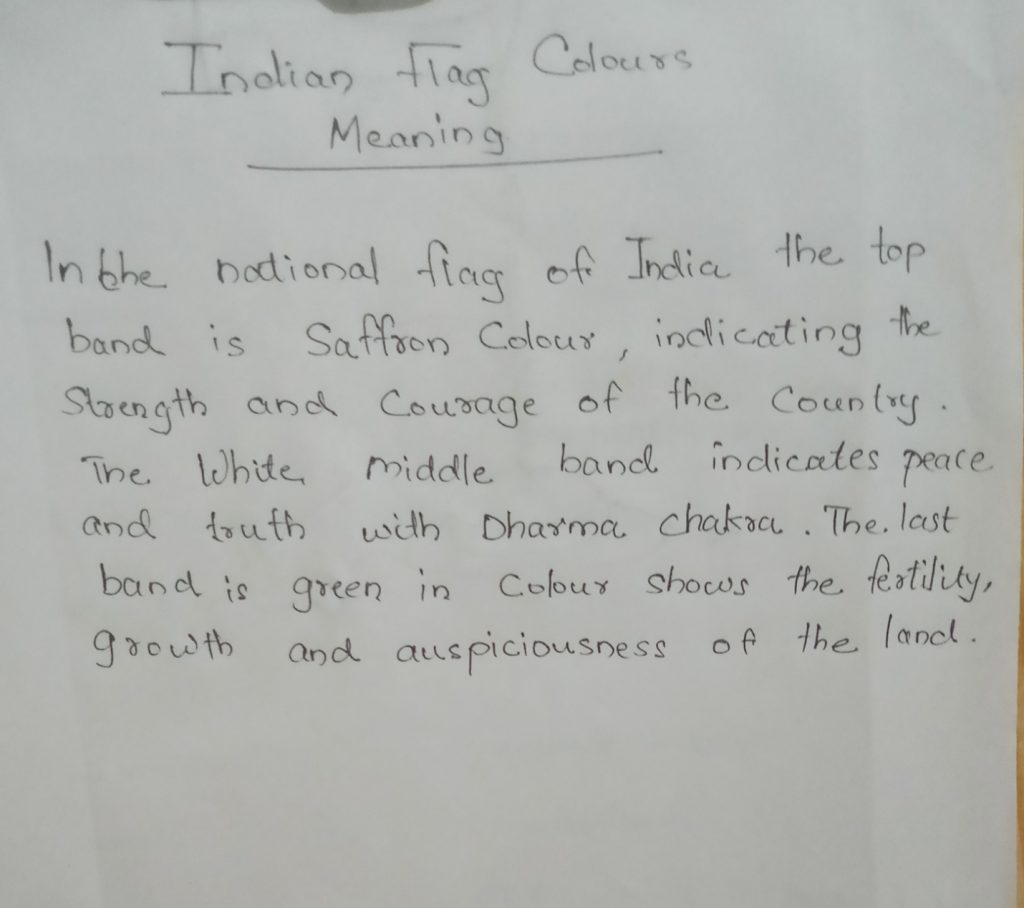 Indian flag Colours
Meaning
In the national flag of India the top
band is Saffron Colour, indicating the
Strength and Courage of the Country.
The White middle band indicates peace
and truth with Dharma Chakra. The last
band is green in Colour shows the fertility,
growth and auspiciousness of the land.